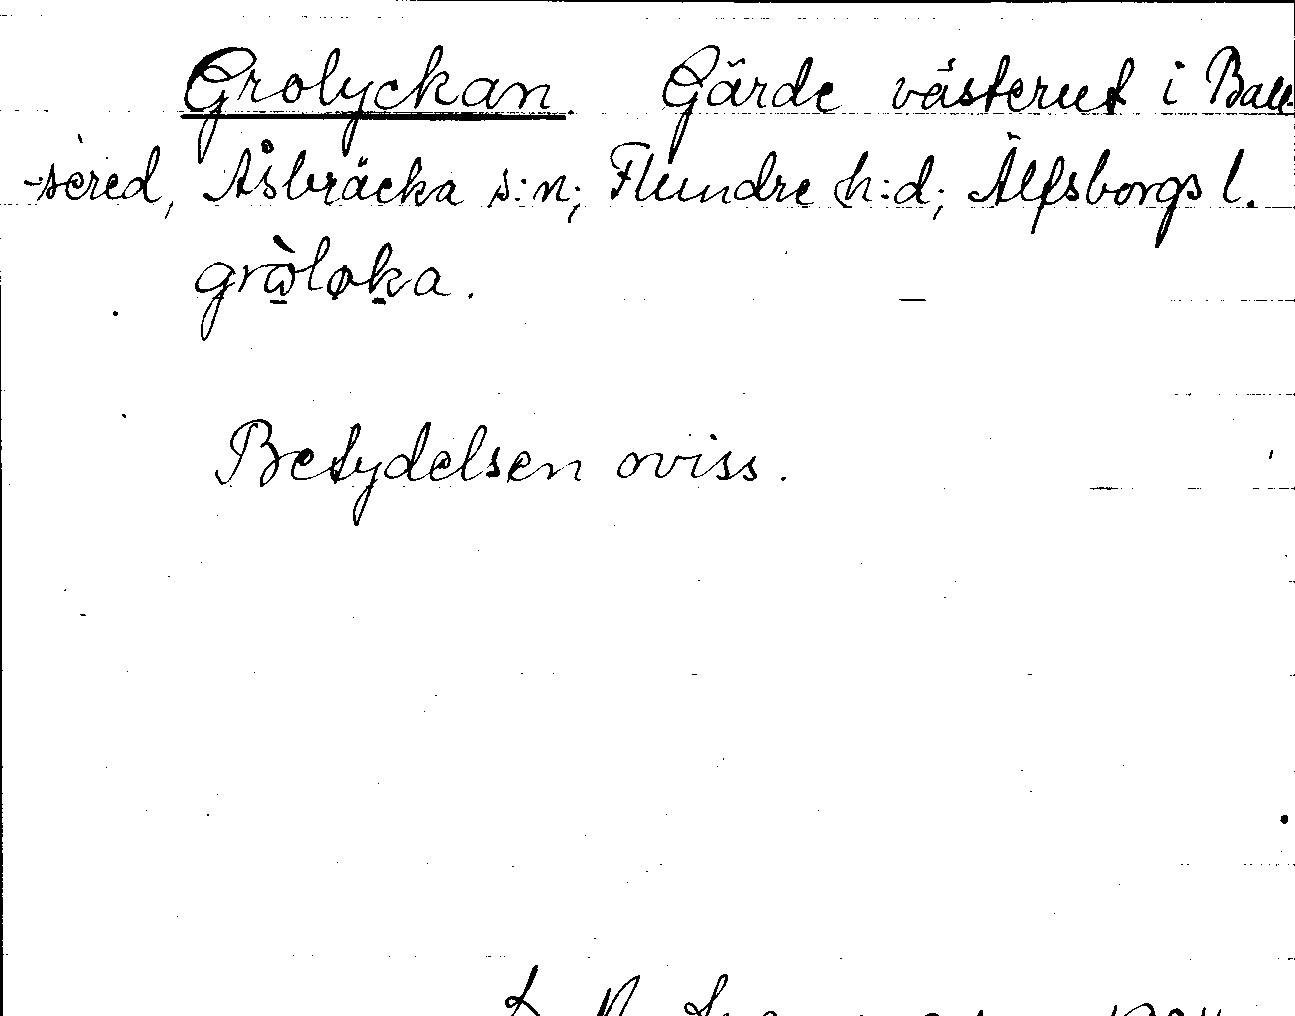 Grolyckan. Gärde västerut i Ball-
-sered, Åsbräcka s:n; Flundre h:d; Älfsborgs l.
grὼløka.
Betydelsen oviss.